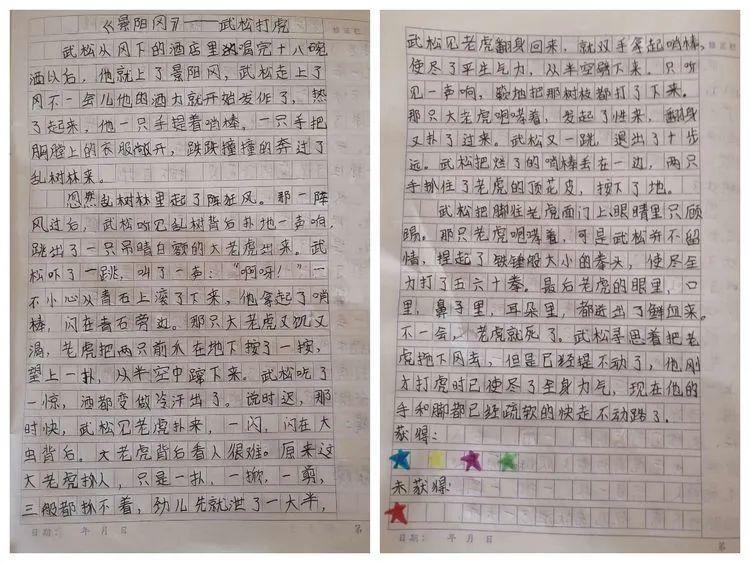 《景阳冈》——武松打虎
武松从冈下的酒店里喝完十八碗
酒以后，他就上了景阳冈，武松走上了
冈不一会儿他的酒力就开始发作了，热
了起来，他一只手提着哨棒。一只手把
胸膛上的衣服敞开，跌跌撞撞的奔过了
乱树林来。
忽然乱树林里起了阵狂风。那一阵
风过后，武松听见乱树背后扑地一声响，
跳出了一只吊睛白额的大老虎出来。武
松吓了一跳，叫了一声：“啊呀！”一
不小心从青石上滚了下来，他拿起了哨
棒，闪在青石旁边。那只大老虎又饥又
渴，老虎把两只前爪在地下按了一按，
望上一扑，从半空中蹿下来。武松吃了
一惊，酒都变做冷汗出了。说时迟，那
时快，武松见老虎扑来，一闪，闪在大
虫背后。大老虎背后看人很难。原来这
大老虎扑人，只是一扑，一掀，一剪，
三般都扑不着，劲儿先就泄了一大半，
日期： 年 月 日 第
武松见老虎翻身回来，就双手拿起哨棒，
使尽了平生气力，从半空劈下来。只听
见一声响，簌地把那树枝都打了下来。
那只大老虎咆哮着，发起了性来，翻身
又扑了过来。武松又一跳，退出了十步
远。武松把烂了的哨棒丢在一边，两只
手扒住了老虎的顶花皮，按下了地。
武松把脚往老虎面门上眼睛里只顾
踢。那只老虎咆哮着，可是武松并不留
情，捏起了铁锤般大小的拳头，使尽全
力打了五六十拳。最后老虎的眼里，口
里，鼻子里，耳朵里，都迸出了鲜血来。
不一会，老虎就死了。武松寻思着把老
虎拖下冈去，但是已经提不动了，他刚
才打虎时已使尽了全身力气，现在他的
手和脚都已经疏软的快走不动路了.
获得：
未获得：
日期： 年 月 日 第